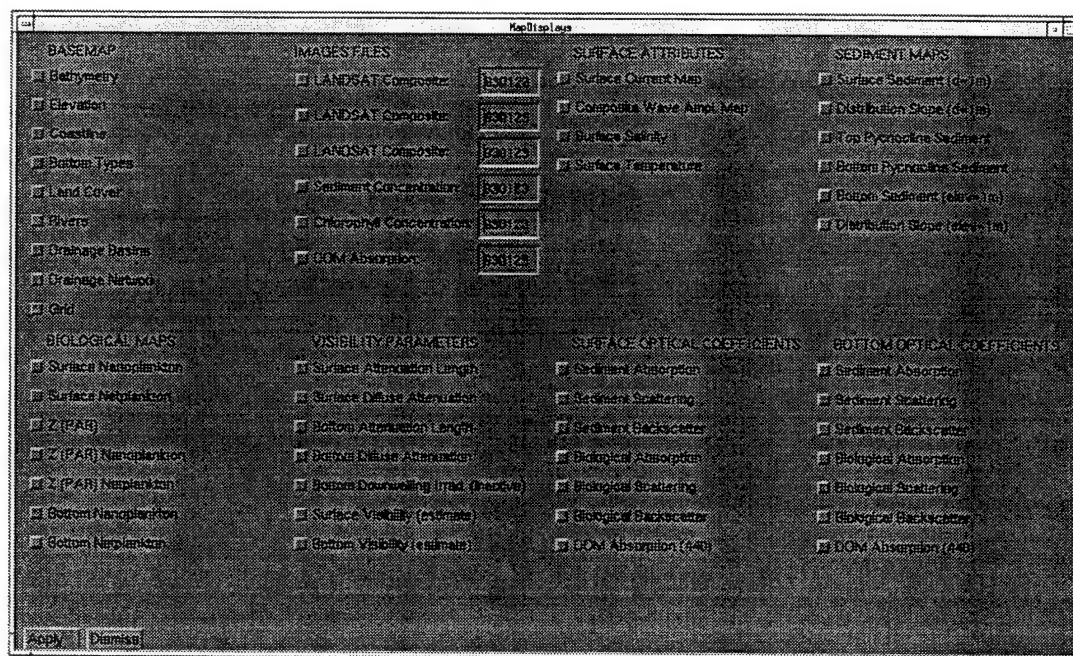 MapDisplays
BASEMAP
Bathymetry
Elevation
Coastline
Bottom Types
Land Cover
Rivers
Drainage Basins
Drainage Network
Grid
IMAGES FILES
LANDSAT Composite: 930123
LANDSAT Composite: 930123
LANDSAT Composite: 930123
Sediment Concentration: 930123
Chlorophyll Concentration: 930123
DOM Absorption: 930123
SURFACE ATTRIBUTES
Surface Current Map
Composite Wave Ampl. Map
Surface Salinity
Surface Temperature
SEDIMENT MAPS
Surface Sediment (d=1m)
Distribution Slope (d=1m)
Top Pycnocline Sediment
Bottom Pycnocline Sediment
Bottom Sediment (elev=1m)
Distribution Slope (elev=1m)
BIOLOGICAL MAPS
Surface Nanoplankton
Surface Netplankton
Z (PAR)
Z (PAR) Nanoplankton
Z (PAR) Netplankton
Bottom Nanoplankton
Bottom Netplankton
VISIBILITY PARAMETERS
Surface Attenuation Length
Surface Diffuse Attenuation
Bottom Attenuation Length
Bottom Diffuse Attenuation
Bottom Downwelling Irrad. (Inactive)
Surface Visibility (estimate)
Bottom Visibility (estimate)
SURFACE OPTICAL COEFFICIENTS
Sediment Absorption
Sediment Scattering
Sediment Backscatter
Biological Absorption
Biological Scattering
Biological Backscatter
DOM Absorption (440)
BOTTOM OPTICAL COEFFICIENTS
Sediment Absorption
Sediment Scattering
Sediment Backscatter
Biological Absorption
Biological Scattering
Biological Backscatter
DOM Absorption (440)
Apply Dismiss